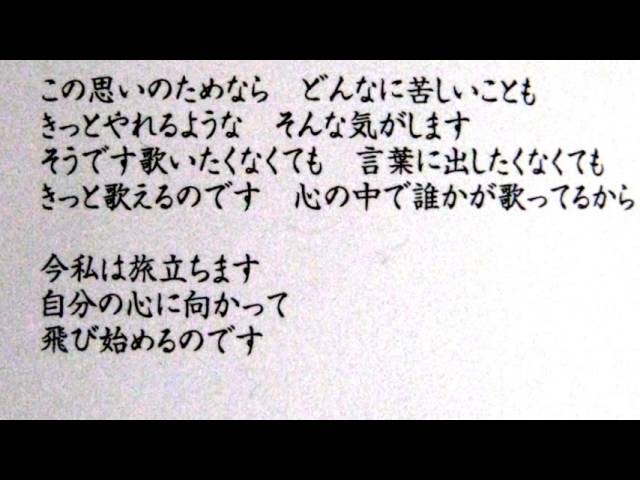 この思いのためなら　どんなに苦しいことも
きっとやれるような　そんな気がします
そうです歌いたくなくても　言葉に出したくなくても
きっと歌えるのです　心の中で誰かが歌ってるから
今私は旅立ちます
自分の心に向かって
飛び始めるのです